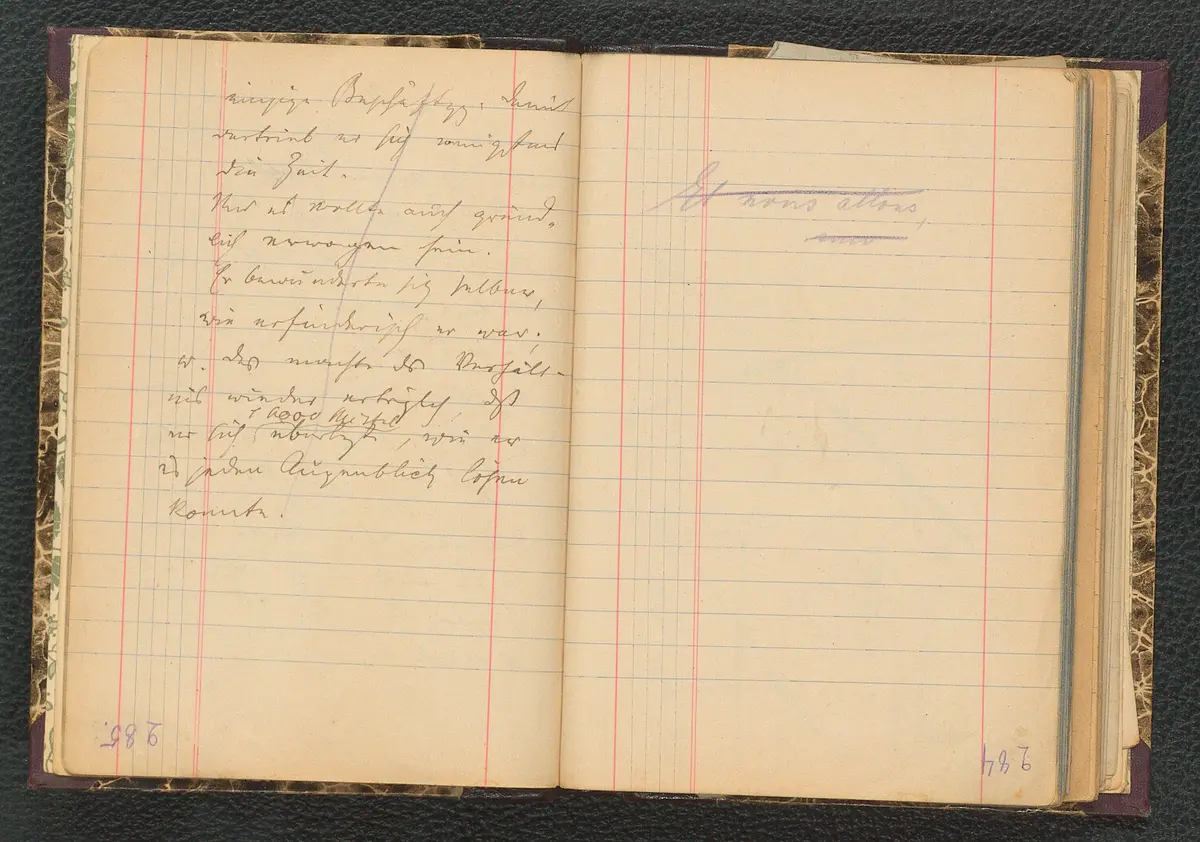 einzige Beschäftgg. Damit
vertrieb er sich wenigstens
die Zeit.
Und es wollte auch gründ-
lich erwogen sein.
Er bewunderte sich selber,
wie erfinderisch er war;
u. das machte das Verhält-
nis wieder erträglich, daß
er sich überlegte, wie er
es jeden Augenblick lösen
konnte.
285.
Et nous allons,
284